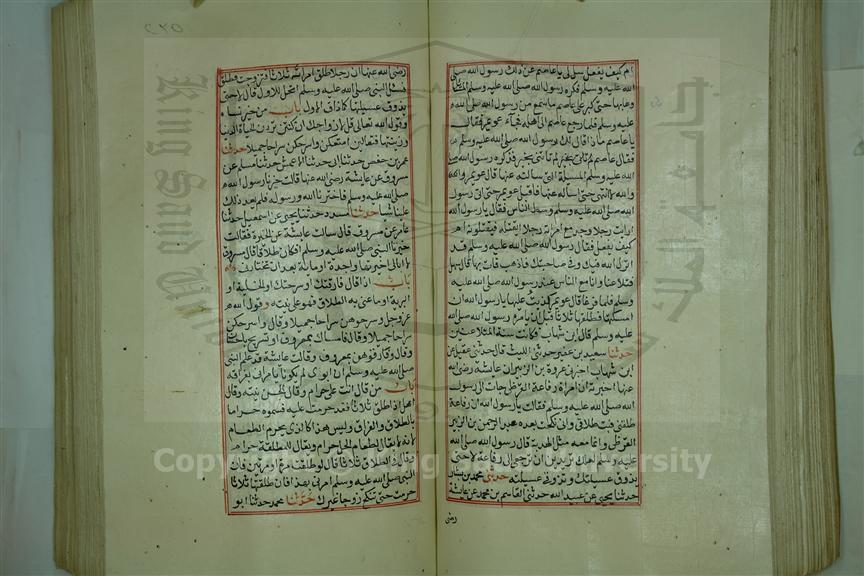 ام كيف يفعل سل لي يا عاصم عن ذلك رسول الله صلى
الله عليه وسلم فكره رسول الله صلى الله عليه وسلم المسائل
وعابها حتى كبر على عاصم ما سمع من رسول الله صلى الله
عليه وسلم فلما رجع عاصم الى اهله جاء عويمر فقال
يا عاصم ماذا قال لك رسول الله صلى الله عليه وسلم
فقال عاصم لم تاتني بخير قد كره رسول الله صلى
الله عليه وسلم المسئلة التي سالته عنها قال عويمر والله
لا انتهي حتى اساله عنها فاقبل عويمر حتى اتى رسول
الله صلى الله عليه وسلم وسط الناس فقال يا رسول الله
ارايت رجلا وجد مع امراته رجلا ايقتله فيقتلونه ام
كيف يفعل فقال رسول الله صلى الله عليه وسلم قد
انزل الله فيك وفي صاحبتك فاذهب فات بها قال سهل
فتلاعنا وانا مع الناس عند رسول الله صلى الله عليه
وسلم فلما فرغا قال عويمر كذبت عليها يا رسول الله ان
امسكتها فطلقها ثلاثا قبل ان يامره رسول الله صلى الله
عليه وسلم قال ابن شهاب فكانت سنة المتلاعنين
حدثنا سعيد بن عفير حدثني الليث قال حدثني عقيل عن
ابن شهاب اخبرني عروة بن الزبير ان عايشة رضي الله
عنها اخبرته ان امراة رفاعة القرظي جات الى رسول
الله صلى الله عليه وسلم فقالت يا رسول الله ان رفاعة
طلقني فبت طلاقي واني نكحت بعده عبد الرحمن بن الزبير
القرظي وانما معه مثل الهدبة قال رسول الله صلى الله
عليه وسلم لعلك تريدين ان ترجعي الى رفاعة لا حتى
يذوق عسيلتك وتذوقي عسيلته حدثني محمد بن بشار
حدثنا يحيى عن عبيد الله حدثني القاسم بن محمد عن عايشة
رضي
رضي الله عنها ان رجلا طلق امراته ثلاثا فتزوجت فطلق
فسئل النبي صلى الله عليه وسلم اتحل للاول قال لا حتى
يذوق عسيلتها كما ذاق الاول باب من خير نساءه
وقول الله تعالى قل لازواجك ان كنتن تردن الحياة الدنيا
وزينتها فتعالين امتعكن واسرحكن سراحا جميلا حدثنا
عمر بن حفص حدثنا ابي حدثنا الاعمش حدثنا مسلم عن
مسروق عن عايشة رضي الله عنها قالت خيرنا رسول الله
صلى الله عليه وسلم فاخترنا الله ورسوله فلم يعد ذلك
علينا شيا حدثنا مسدد حدثنا يحيى عن اسمعيل حدثنا
عامر عن مسروق قال سالت عايشة عن الخيرة فقالت
خيرنا النبي صلى الله عليه وسلم افكان طلاقا قال مسروق
لا ابالي اخيرتها واحدة او ماية بعد ان تختارني
باب اذا قال فارقتك او سرحتك او الخلية او
البرية او ما عني به الطلاق فهو على نيته وقول الله
عز وجل وسرحوهن سراحا جميلا وقال واسرحكن
سراحا جميلا وقال فامساك بمعروف او تسريح باحسان
وقال او فارقوهن بمعروف وقالت عايشة قد علم النبي
صلى الله عليه وسلم ان ابوي لم يكونا يامراني بفراقه
باب من قال لامراته انت علي حرام وقال الحسن نيته وقال
اهل العلم اذا طلق ثلاثا فقد حرمت عليه فسموه حراما
بالطلاق والفراق وليس هذا كالذي يحرم الطعام
لانه لا يقال لطعام الحل حرام ويقال للمطلقة حرام
وقال في الطلاق ثلاثا قال لو طلقت مرة او مرتين فان
النبي صلى الله عليه وسلم امرني بهذا فان طلقتها ثلاثا
حرمت حتى تنكح زوجا غيرك حدثنا محمد حدثنا ابو
Copyright © King Saud University
King Saud University
جامعة الملك